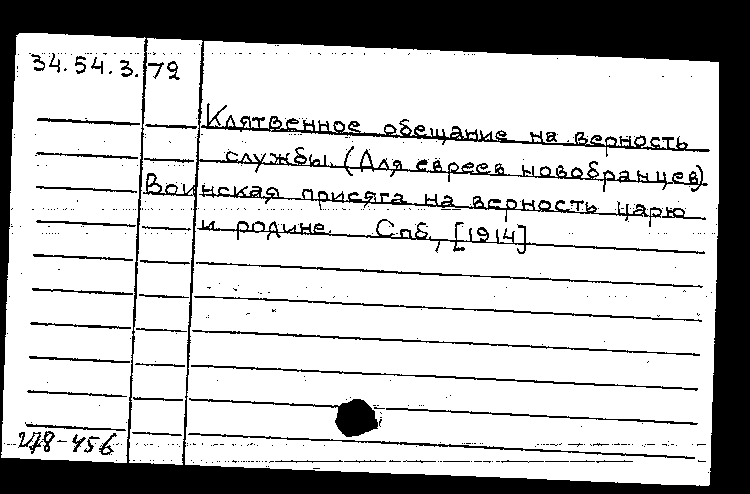 34.54.3.72
Клятвенное обещание на верность
службы. (Для евреев новобранцев)
Воинская присяга на верность царю
и родине. Спб., [1914]